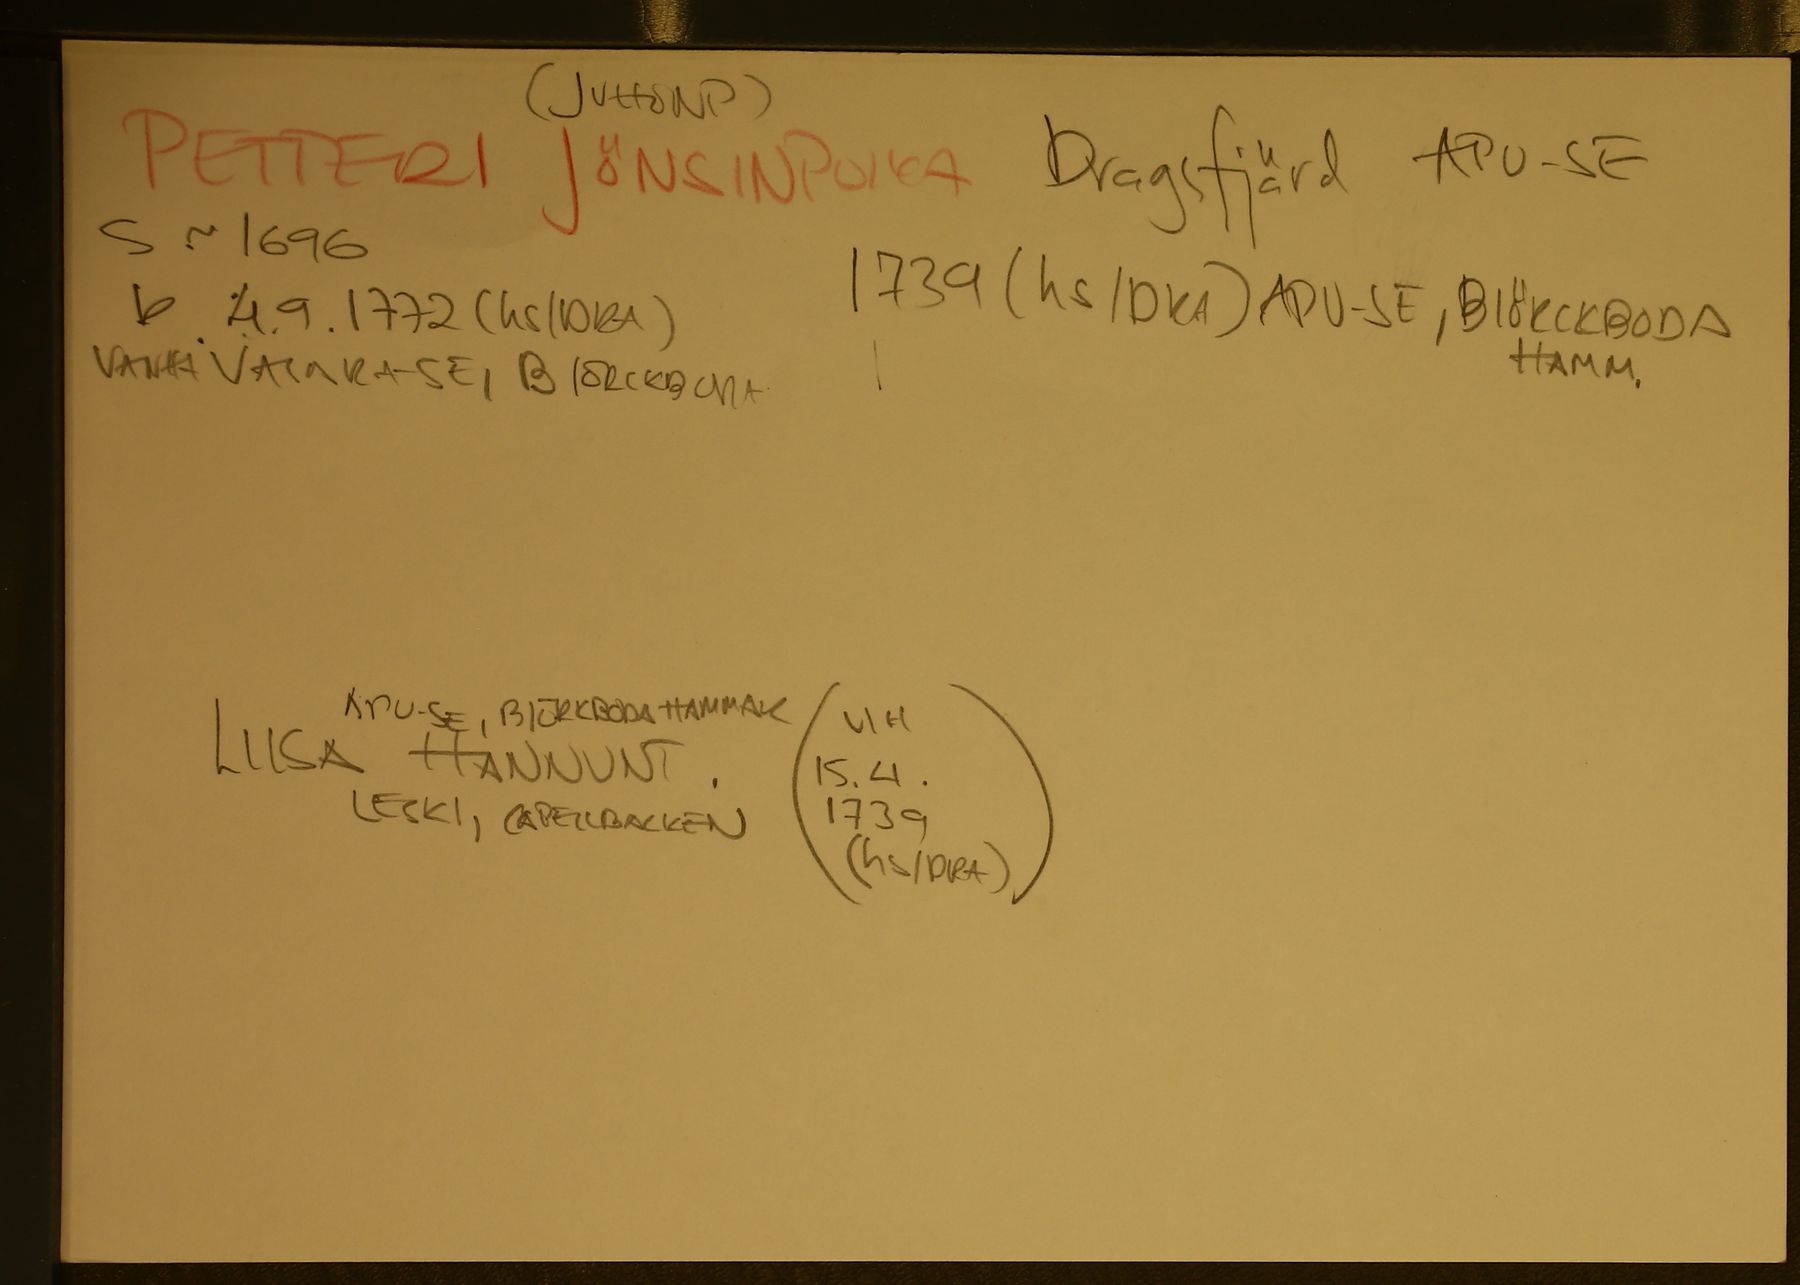 (JUHONP)
PETTERI JÖNSINPOIKA Dragsfjärd APU-SE
S ~ 1696
k. 4.9.1772 (hs/DRA)
1739 (hs/DRA) APU-SE, BIÖRCKBODA
HAMM.
VANHA VASARA-SE, BIÖRCKBODA
APU-SE, BJÖRKBODA HAMMAR
LIISA HANNUNT.
LESKI, CAPELLBACKEN
(VIH
15.4.
1739
(hs/DRA))